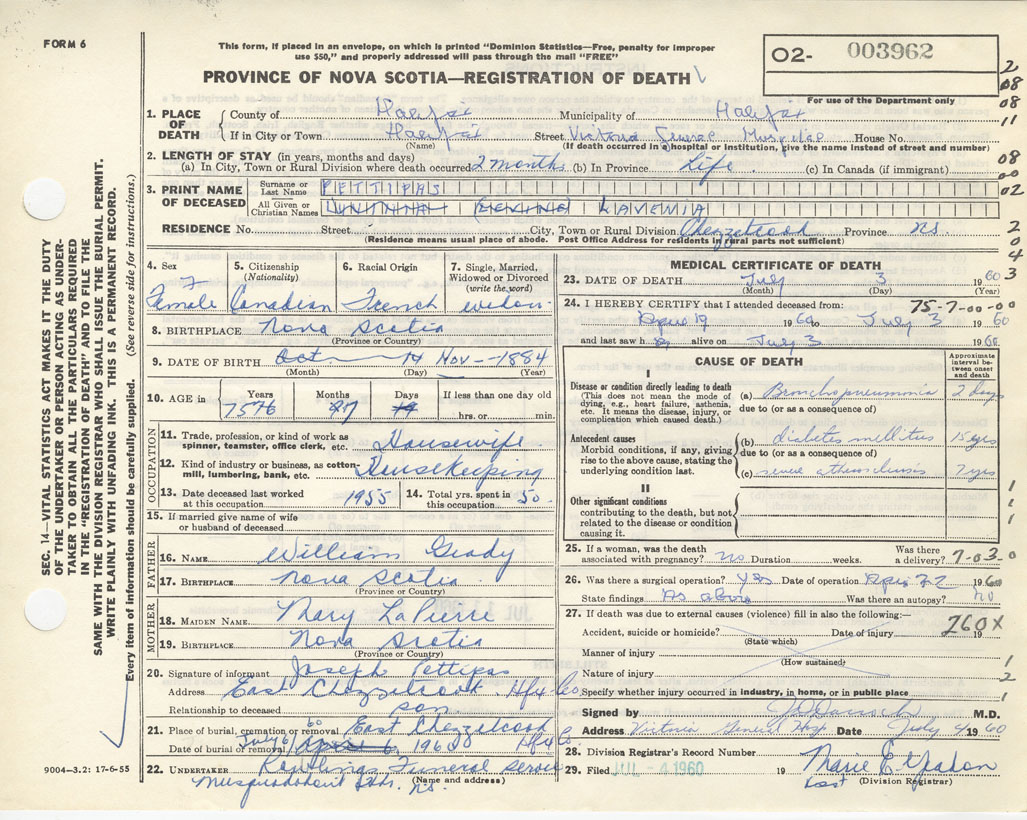 FORM 6
This form, if placed in an envelope, on which is printed "Dominion Statistics—Free, penalty for improper
use $50," and properly addressed will pass through the mail "FREE"
O2- 003962
For use of the Department only
PROVINCE OF NOVA SCOTIA—REGISTRATION OF DEATH
2
08
08
11
1. PLACE OF DEATH County of Halifax Municipality of Halifax
If in City or Town Halifax Street Victoria General Hospital House No.
(Name) (If death occurred in a hospital or institution, give the name instead of street and number)
2. LENGTH OF STAY (in years, months and days)
(a) In City, Town or Rural Division where death occurred 2 months (b) In Province Life (c) In Canada (if immigrant)
08
00
3. PRINT NAME OF DECEASED Surname or Last Name PETTIPAS
All Given or Christian Names LAVENIA
02
RESIDENCE No. Street City, Town or Rural Division Chezzetcook Province NS.
(Residence means usual place of abode. Post Office Address for residents in rural parts not sufficient)
2
0
4
3
4. Sex Female
5. Citizenship (Nationality) Canadian
6. Racial Origin French
7. Single, Married, Widowed or Divorced (write the word) widow
8. BIRTHPLACE Nova Scotia
(Province or Country)
9. DATE OF BIRTH Oct 14 Nov - 1884
(Month) (Day) (Year)
10. AGE in Years Months Days If less than one day old
75 76 hrs. or min.
OCCUPATION
11. Trade, profession, or kind of work as spinner, teamster, office clerk, etc. Housewife
12. Kind of industry or business, as cotton-mill, lumbering, bank, etc. Housekeeping
13. Date deceased last worked at this occupation 1955
14. Total yrs. spent in this occupation 50.
15. If married give name of wife or husband of deceased
FATHER
16. NAME William Grady
17. BIRTHPLACE Nova Scotia
(Province or Country)
MOTHER
18. MAIDEN NAME Mary LaPierre
19. BIRTHPLACE Nova Scotia
(Province or Country)
20. Signature of informant Joseph Pettipas
Address East Chezzetcook. Hfx Co.
Relationship to deceased son
21. Place of burial, cremation or removal East Chezzetcook
Date of burial or removal July 6/60 April 6 1960 Hfx Co.
22. UNDERTAKER Rawlings Funeral Service
(Name and address)
Musquodoboit Hbr. N.S.
MEDICAL CERTIFICATE OF DEATH
23. DATE OF DEATH July 3 60
(Month) (Day) (Year)
24. I HEREBY CERTIFY that I attended deceased from: 75-7-00-00
April 19 1960 to July 3 1960
and last saw h er alive on July 3 1960
CAUSE OF DEATH
Approximate interval between onset and death
I
Disease or condition directly leading to death
(This does not mean the mode of dying, e.g., heart failure, asthenia, etc. It means the disease, injury, or complication which caused death.)
(a) Bronchopneumonia 2 days
due to (or as a consequence of)
Antecedent causes
Morbid conditions, if any, giving rise to the above cause, stating the underlying condition last.
(b) diabetes mellitus 15 yrs
due to (or as a consequence of)
(c) severe 7 yrs
II
Other significant conditions
contributing to the death, but not related to the disease or condition causing it.
1
1
1
25. If a woman, was the death associated with pregnancy? no Duration weeks. Was there a delivery? 7-03 0
26. Was there a surgical operation? Yes Date of operation 1960
State findings As above Was there an autopsy? no
27. If death was due to external causes (violence) fill in also the following:—
260X
Accident, suicide or homicide? Date of injury 19
(State which)
Manner of injury
(How sustained)
Nature of injury
Specify whether injury occurred in industry, in home, or in public place
1
2
1
Signed by M.D.
Address Victoria General Hosp. Date July 4 1960
28. Division Registrar's Record Number
29. Filed JUL - 4 1960 19 Marie E.
(Division Registrar)
SEC. 14—VITAL STATISTICS ACT MAKES IT THE DUTY
OF THE UNDERTAKER OR PERSON ACTING AS UNDER-
TAKER TO OBTAIN ALL THE PARTICULARS REQUIRED
IN THE "REGISTRATION OF DEATH," AND TO FILE THE
SAME WITH THE DIVISION REGISTRAR WHO SHALL ISSUE THE BURIAL PERMIT.
WRITE PLAINLY WITH UNFADING INK. THIS IS A PERMANENT RECORD.
Every item of information should be carefully supplied. (See reverse side for instructions.)
9004—3.2: 17-6-55